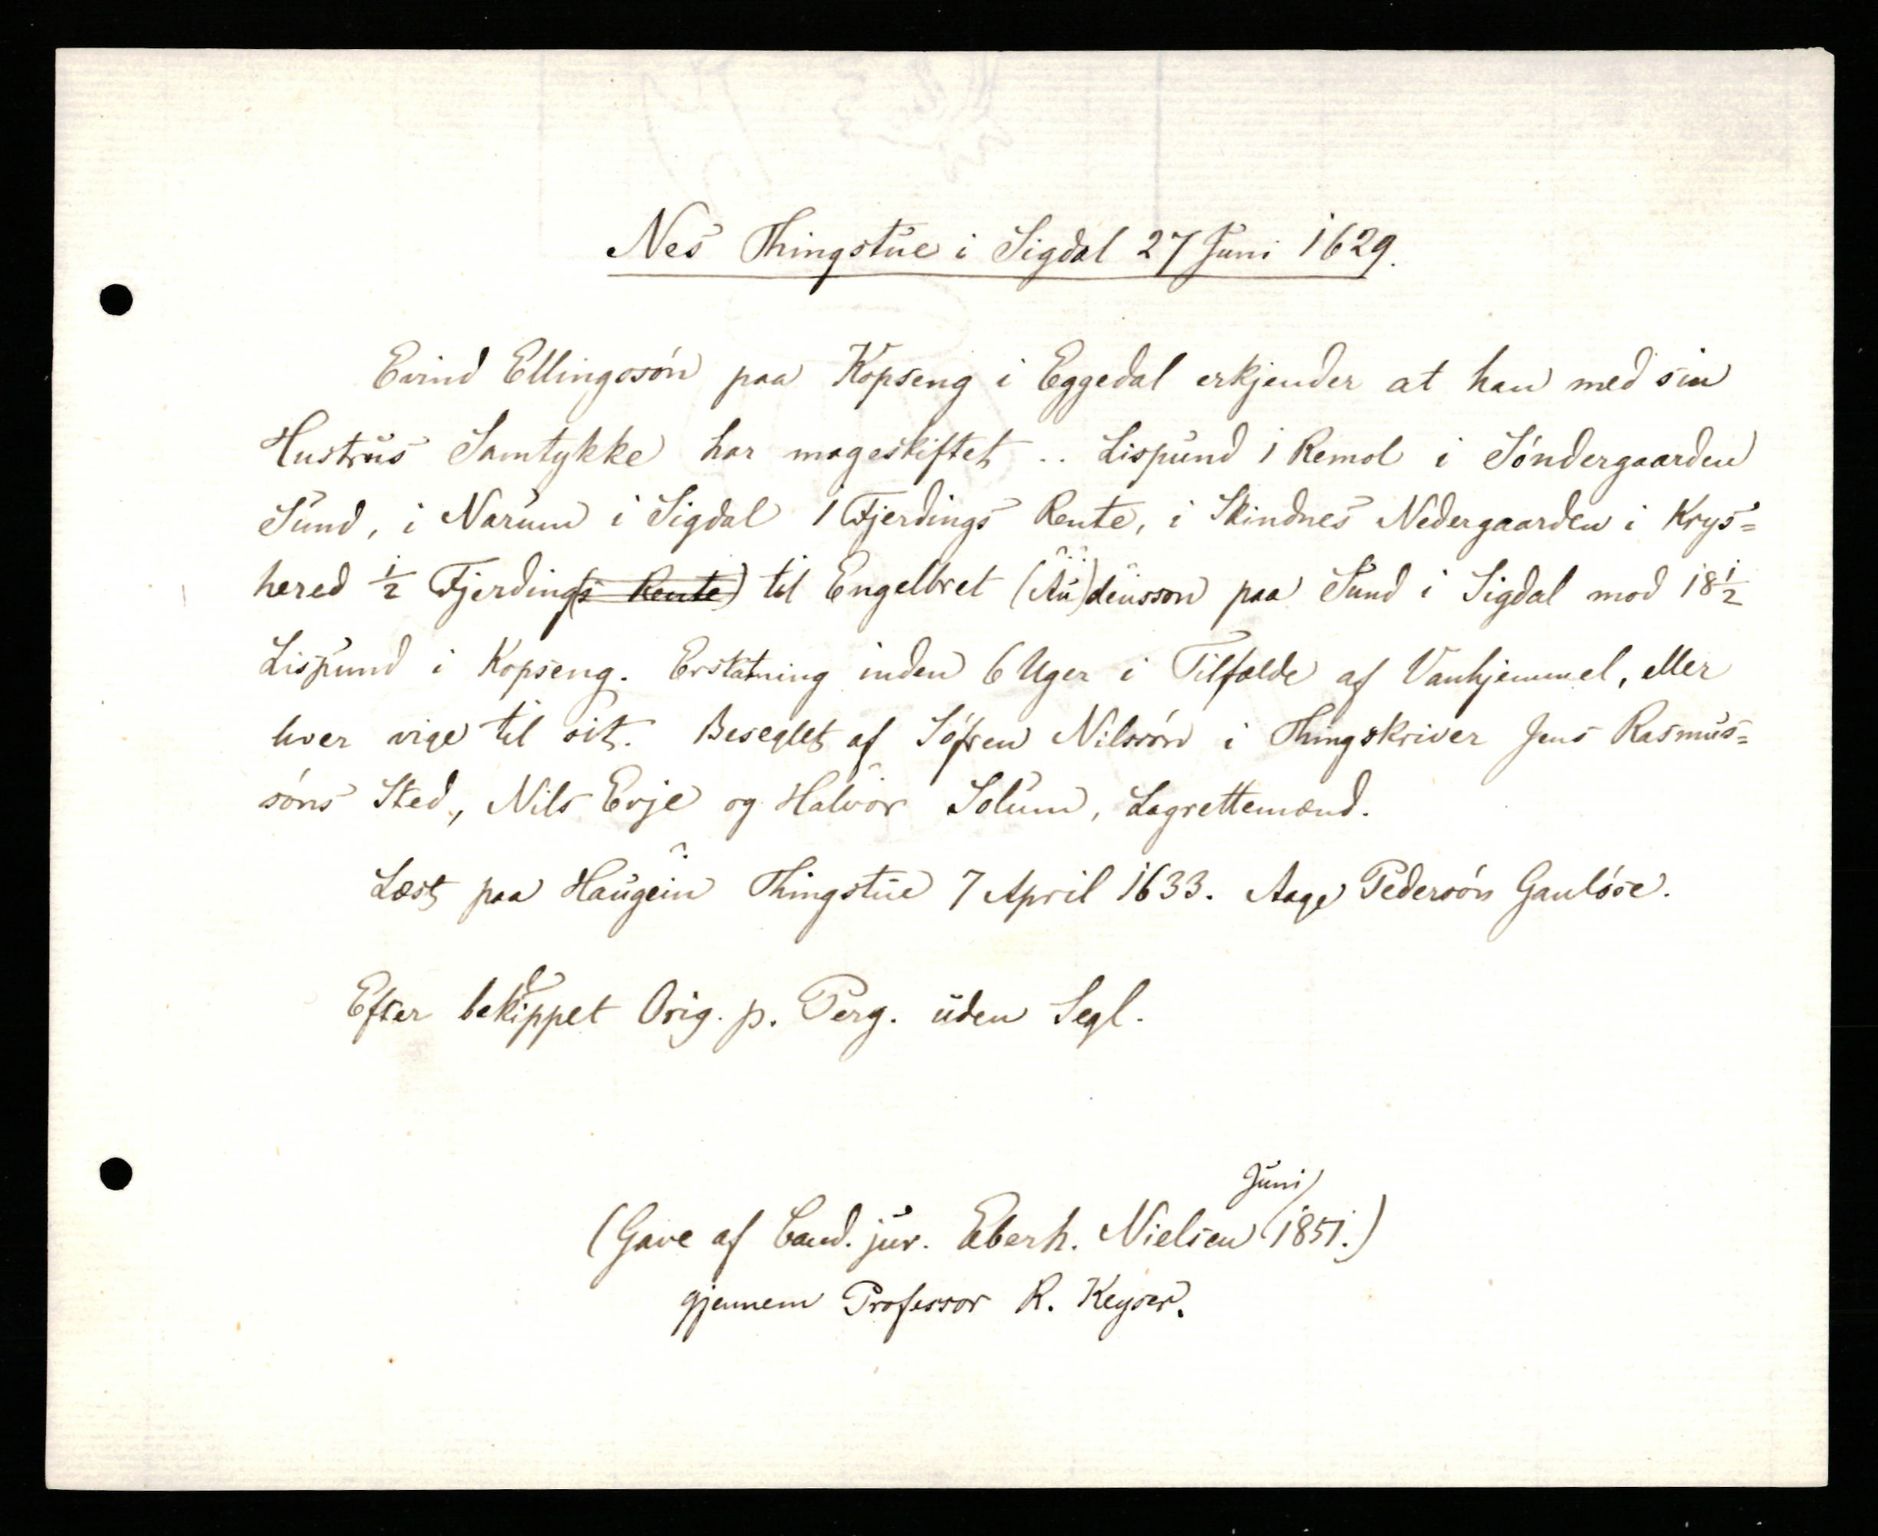 Nes Thingstue i Sigdal 27 Juni 1629.
Eivind Ellingssón paa Kopseng i Eggedal erkjender at han med sin
Hustrus Samtykke har mageskiftet .. Lispund i Remol i Søndergaarden
Sund, i Narum i Sigdal 1 Fjerdings Rente, i Skindnes Nedergaarden i Krys=
hered ½ Fjerding(s Rente) til Engelbret (Au)densson paa Sund i Sigdal mod 18½
Lispund i Kopseng. Erstatning inden 6 Uger i Tilfælde af Vanhjemmel, eller
hver vige til sit. Beseglet af Söfren Nilssón i Thingskriver Jens Rasmus=
sóns Sted, Nils Evje og Halvor Solum, Lagrettemænd.
Læst paa Haugein Thingstue 7 April 1633. Aage Pedersón Gauløse.
Efter beklippet Orig. p. Perg. uden Segl.
Juni
(Gave af Cand. jur. Eberh. Nielsen 1851.)
gjennem Professor R. Keyser.